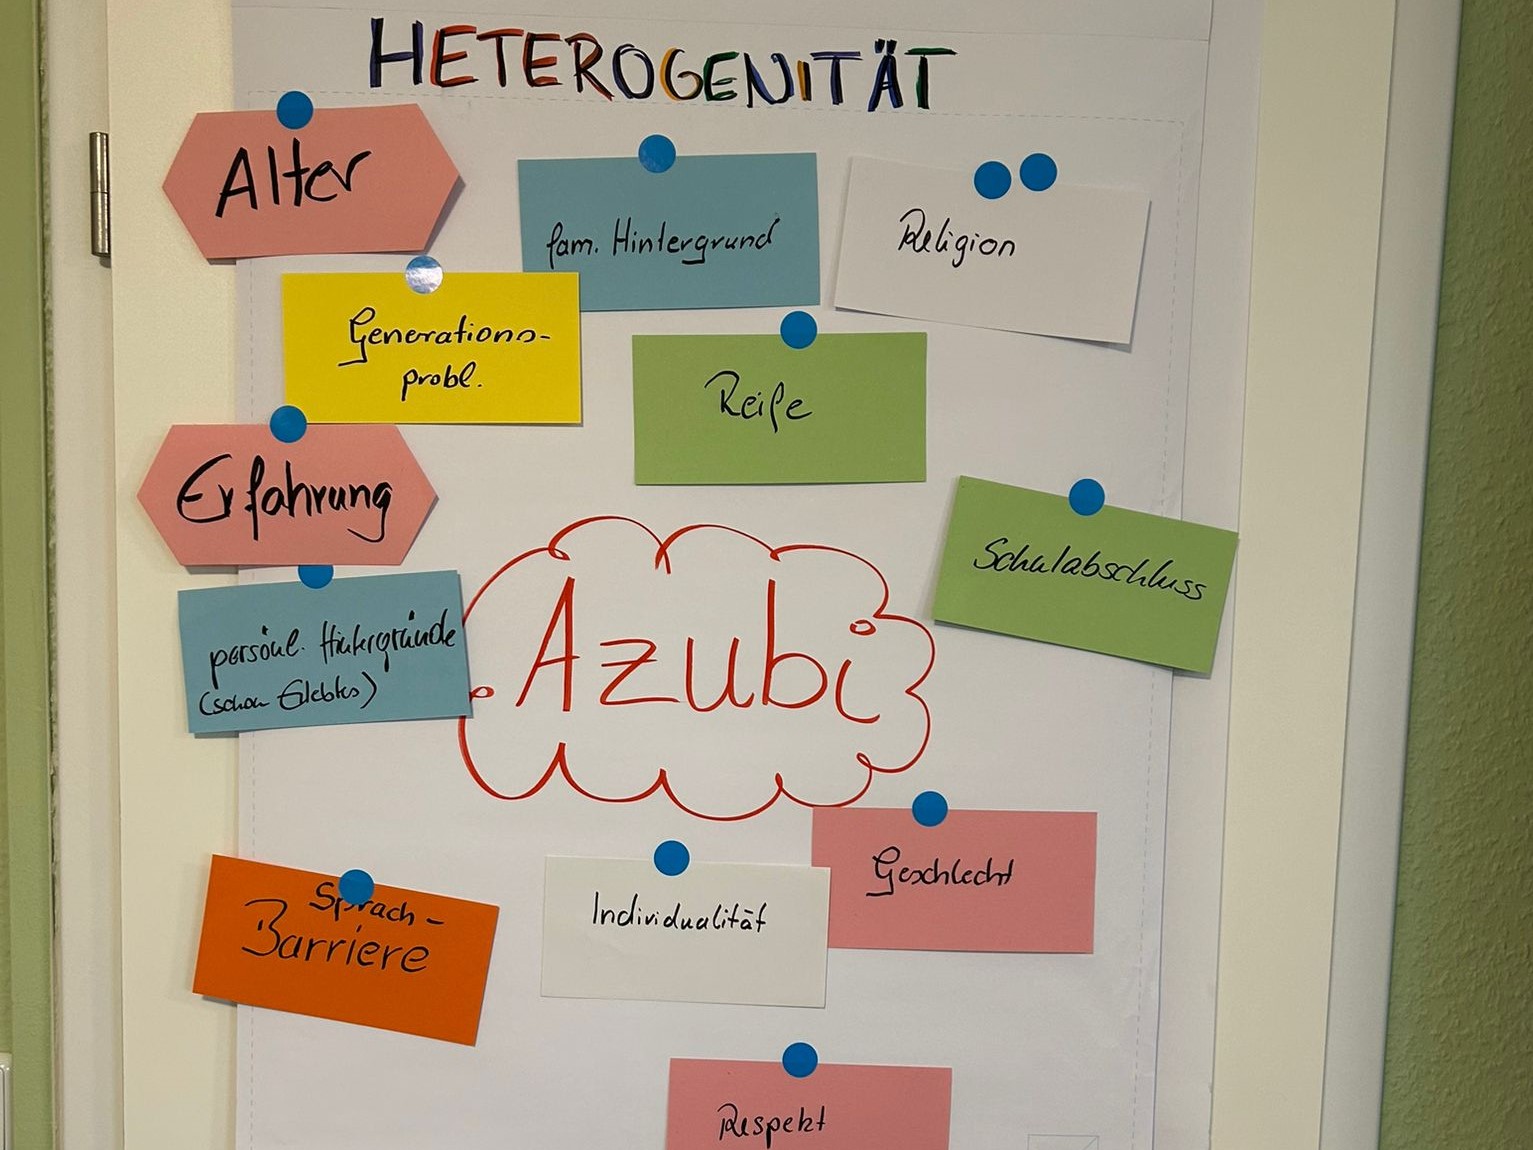 HETEROGENITÄT
Alter
fam. Hintergrund
Religion
Generations-
probl.
Reife
Erfahrung
Schulabschluss
persönl. Hintergründe
(schon Erlebtes)
Azubi
Geschlecht
Sprach-
Barriere
Individualität
Respekt